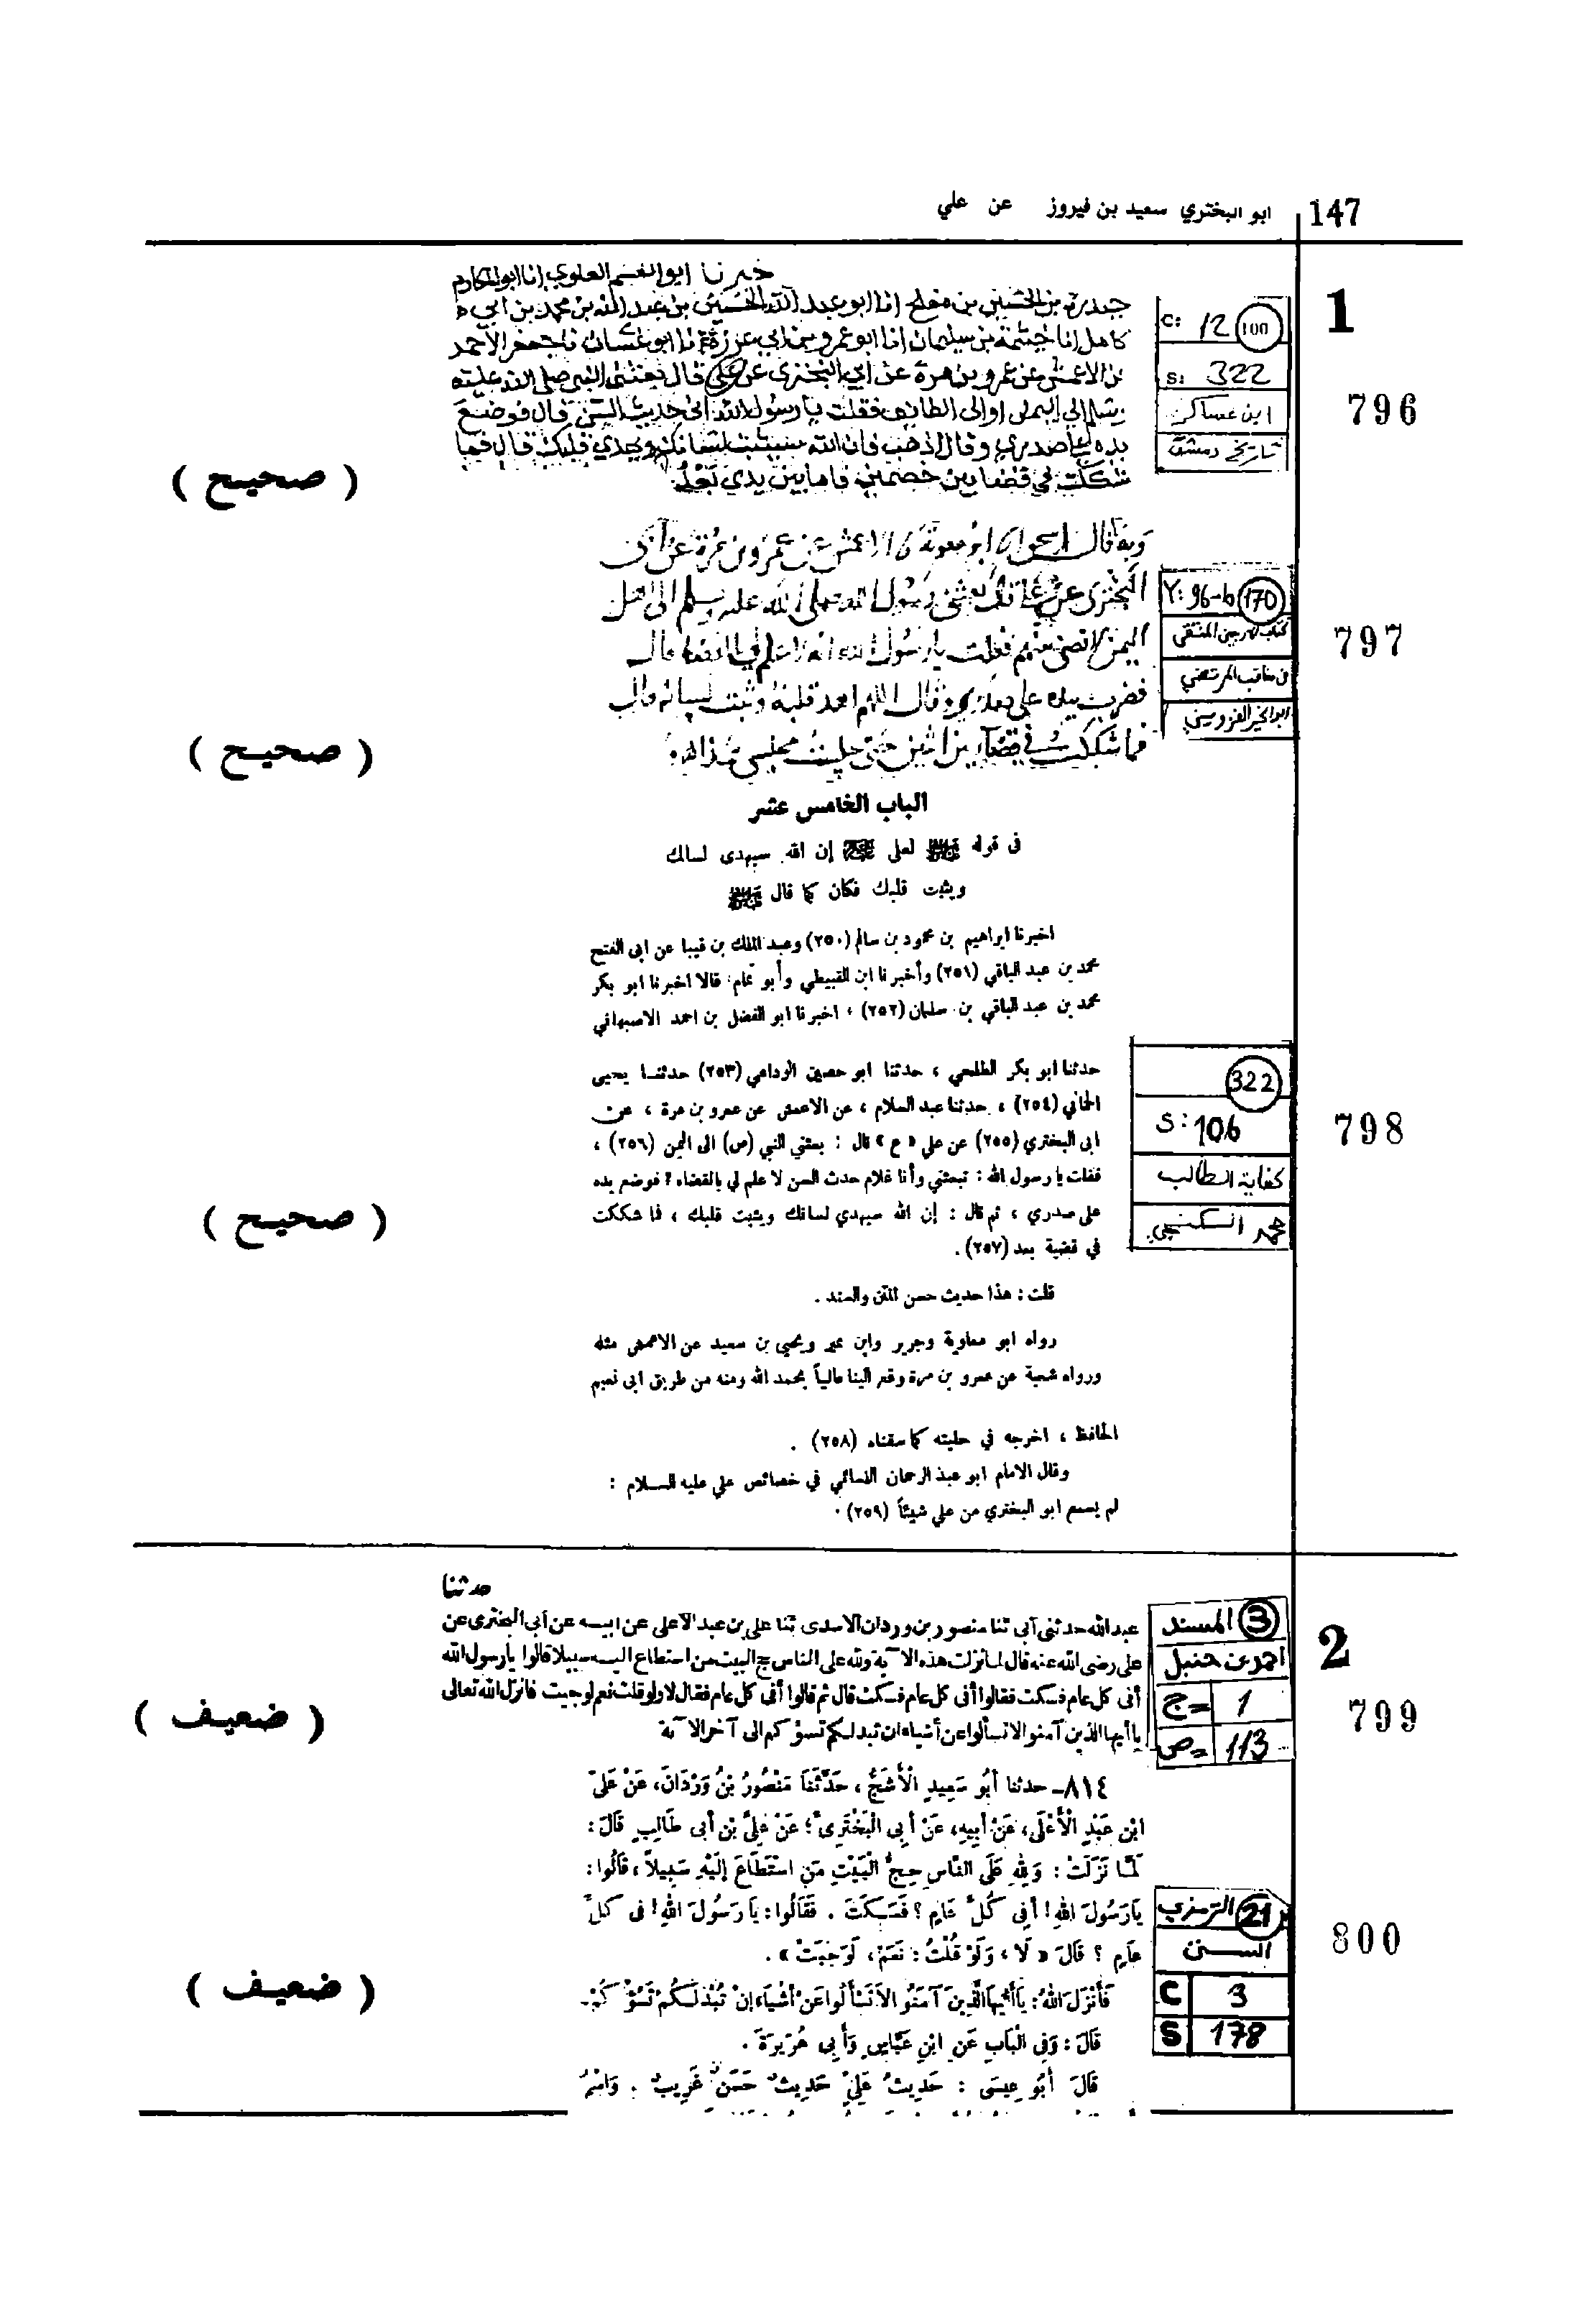 147
ابو البختري سعيد بن فيروز عن علي
1
خبرنا ابو القسم العلوي انا ابو المكارم
حيدرة بن الحسين بن مفلح انا ابو عبد الله الحسين بن عبد الله بن محمد بن ابي
كامل انا خيثمة بن سليمان انا ابو عمرو بن ابي عرزة نا ابو غسان نا جعفر الاحمر
عن الاعمش عن عمرو بن مرة عن ابي البختري عن علي قال بعثني النبي صلى الله عليه
وسلم الى اليمن او الى الطايف فقلت يا رسول الله اني حديث السن قال فوضع
يده على صدري وقال اذهب فان الله سيثبت لسانك ويهدي قلبك قال فما
شككت في قضا بين خصمين قاما بين يدي بعد
C: 12 100
S: 322
ابن عساكر
تاريخ دمشق
796
( صحيح )
وبه قال ابو معوية الاعمش عن عمرو بن مرة عن ابي
البختري عن علي قال بعثني رسول الله صلى الله عليه وسلم الى اهل
اليمن لاقضي بينهم فقلت يا رسول الله انه لا علم لي بالقضا قال
فضرب بيده على صدري وقال اللهم اهد قلبه وثبت لسانه قال
فما شككت في قضاء بين اثنين حتى جلست مجلسي هذا
Y: 96-b 170
كتاب المنتقى
من مناقب المرتضى
ابو الخير القزويني
797
( صحيح )
الباب الخامس عشر
فى قوله ﷺ لعلى إن الله سيهدى لسانك
ويثبت قلبك فكان كما قال ﷺ
اخبرنا ابراهيم بن محمود بن سالم (٢٥٠) وعبد الملك بن قيبا عن ابى الفتح
محمد بن عبد الباقي (٢٥١) وأخبرنا ابن القبيطي وأبو تمام قالا اخبرنا ابو بكر
محمد بن عبد الباقي بن سلمان (٢٥٢) ، اخبرنا ابو الفضل بن احمد الاصبهاني
حدثنا ابو بكر الطلحي ، حدثنا ابو حصين الوداعي (٢٥٣) حدثنـا يحيى
الحماني (٢٥٤) ، حدثنا عبد السلام ، عن الاعمش عن عمرو بن مرة ، عن
ابى البختري (٢٥٥) عن علي « ع » قال : بعثني النبي (ص) الى اليمن (٢٥٦) ،
فقلت يا رسول الله : تبعثني وأنا غلام حدث السن لا علم لي بالقضاء ؟ فوضع يده
على صدري ، ثم قال : إن الله سيهدي لسانك ويثبت قلبك ، فما شككت
في قضية بعد (٢٥٧) .
322
S: 106
كفاية الطالب
محمد الكنجي
798
( صحيح )
قلت : هذا حديث حسن المتن والسند .
رواه ابو معاوية وجرير وابن نمير ويحيى بن سعيد عن الاعمش مثله
ورواه شعبة عن عمرو بن مرة وقع الينا عالياً بحمد الله ومنه من طريق ابى نعيم
الحافظ ، اخرجه في حليته كما سقناه (٢٥٨) .
وقال الامام ابو عبد الرحمان النسائي في خصائص علي عليه السلام :
لم يسمع ابو البختري من علي شيئاً (٢٥٩) .
2
حدثنا
عبد الله حدثنى أبى ثنا منصور بن وردان الاسدى ثنا على بن عبد الاعلى عن ابيـه عن أبى البخترى عن
على رضى الله عنه قال لما نزلت هذه الآية ولله على الناس حج البيت من استطاع اليـه سبيلا قالوا يا رسول الله
أفى كل عام فسكت فقالوا أفى كل عام فسكت قال ثم قالوا أفى كل عام فقال لا ولو قلت نعم لوجبت فانزل الله تعالى
يا أيها الذين آمنوا لا تسألوا عن أشياء ان تبد لكم تسؤكم الى آخر الآية
3 المسند
احمد بن حنبل
ج= 1
ص= 113
799
( ضعيف )
٨١٤ - حدثنا أبُو سَعِيدٍ الْأَشَجُّ ، حَدَّثَنَا مَنْصُورُ بْنُ وَرْدَانَ، عَنْ عَلِىِّ
ابْنِ عَبْدِ الْأَعْلَى، عَنْ أبِيهِ، عَنْ أبِى الْبَخْتَرِىِّ؛ عَنْ عَلِىِّ بْنِ أبى طَالِبٍ قَالَ :
لَمَّا نَزَلَتْ : وَلِلهِ عَلَى النَّاسِ حِجُّ الْبَيْتِ مَنِ اسْتَطَاعَ إلَيْهِ سَبِيلاً ، قَالُوا :
يَا رَسُولَ اللهِ ! أفِى كُلِّ عَامٍ ؟ فَسَكَتَ . فَقَالُوا : يَا رَسُولَ اللهِ ! فى كلِّ
عَامٍ ؟ قَالَ « لَا ، وَلَوْ قُلْتُ : نَعَمْ ، لَوَجَبَتْ » .
فَأَنْزَلَ اللهُ : يَا أيُّهَا الَّذِينَ آمَنُوا لَا تَسْأَلُوا عَنْ أشْيَاءَ إنْ تُبْدَ لَكُمْ تَسُؤْكُمْ .
قَالَ : وَفِى الْبَابِ عَنِ ابْنِ عَبَّاسٍ وَأبِى هُرَيْرَةَ .
قَالَ أبُو عِيسَى : حَدِيثُ عَلِىٍّ حَدِيثٌ حَسَنٌ غَرِيبٌ . وَاسْمُ
21 الترمذي
السنن
C 3
S 178
800
( ضعيف )